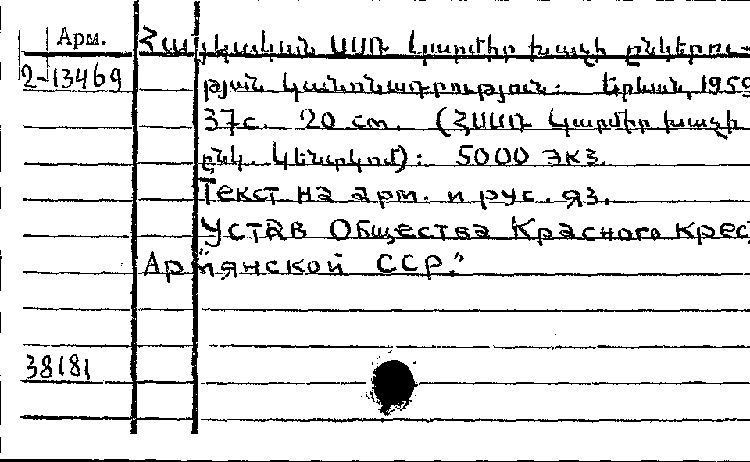 Арм.
Հայկական ՍՍՌ Կարմիր խաչի ընկերու-
2-13469
թյան կանոնադրություն: Երևան, 1959
37с. 20 см. (ՀՍՍՌ Կարմիր խաչի
ընկ. Կենտկոմ): 5000 экз.
Текст на арм. и рус. яз.
"Устав Общества Красного Крес
Армянской ССР."
38181